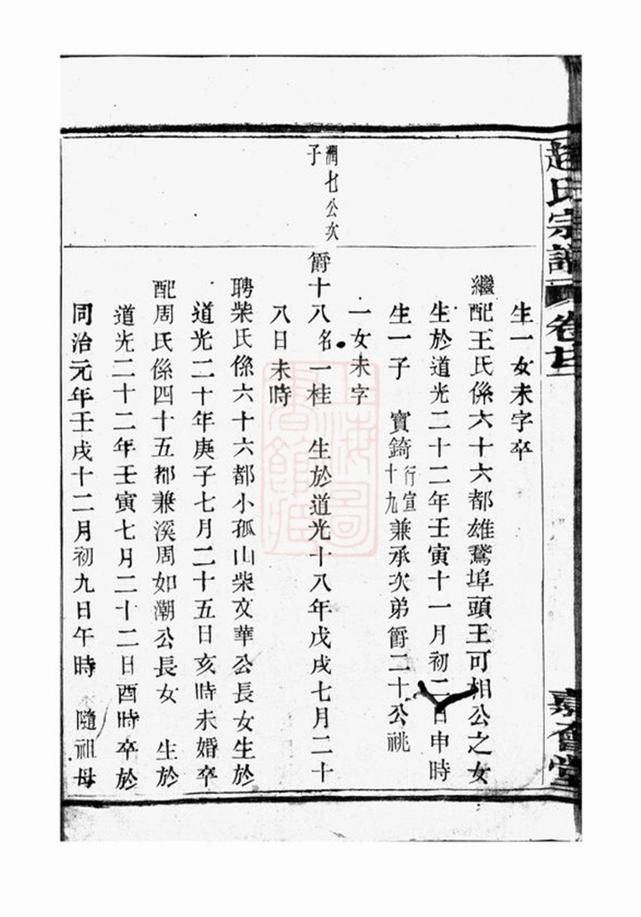 趙氏宗譜 卷廿三
嘉會堂
生一女未字卒
繼配王氏係六十六都雄鵞埠頭王可相公之女
生於道光二十二年壬寅十一月初二日申時
生一子 寶錡行宣十九兼承次弟爵二十公祧
一女未字
潤七公次子
爵十八名一桂 生於道光十八年戊戌七月二十
八日未時
聘柴氏係六十六都小孤山柴文華公長女生於
道光二十年庚子七月二十五日亥時未婚卒
配周氏係四十五都兼溪周如潮公長女 生於
道光二十二年壬寅七月二十二日酉時卒於
同治元年壬戌十二月初九日午時 隨祖母
上海圖書館藏